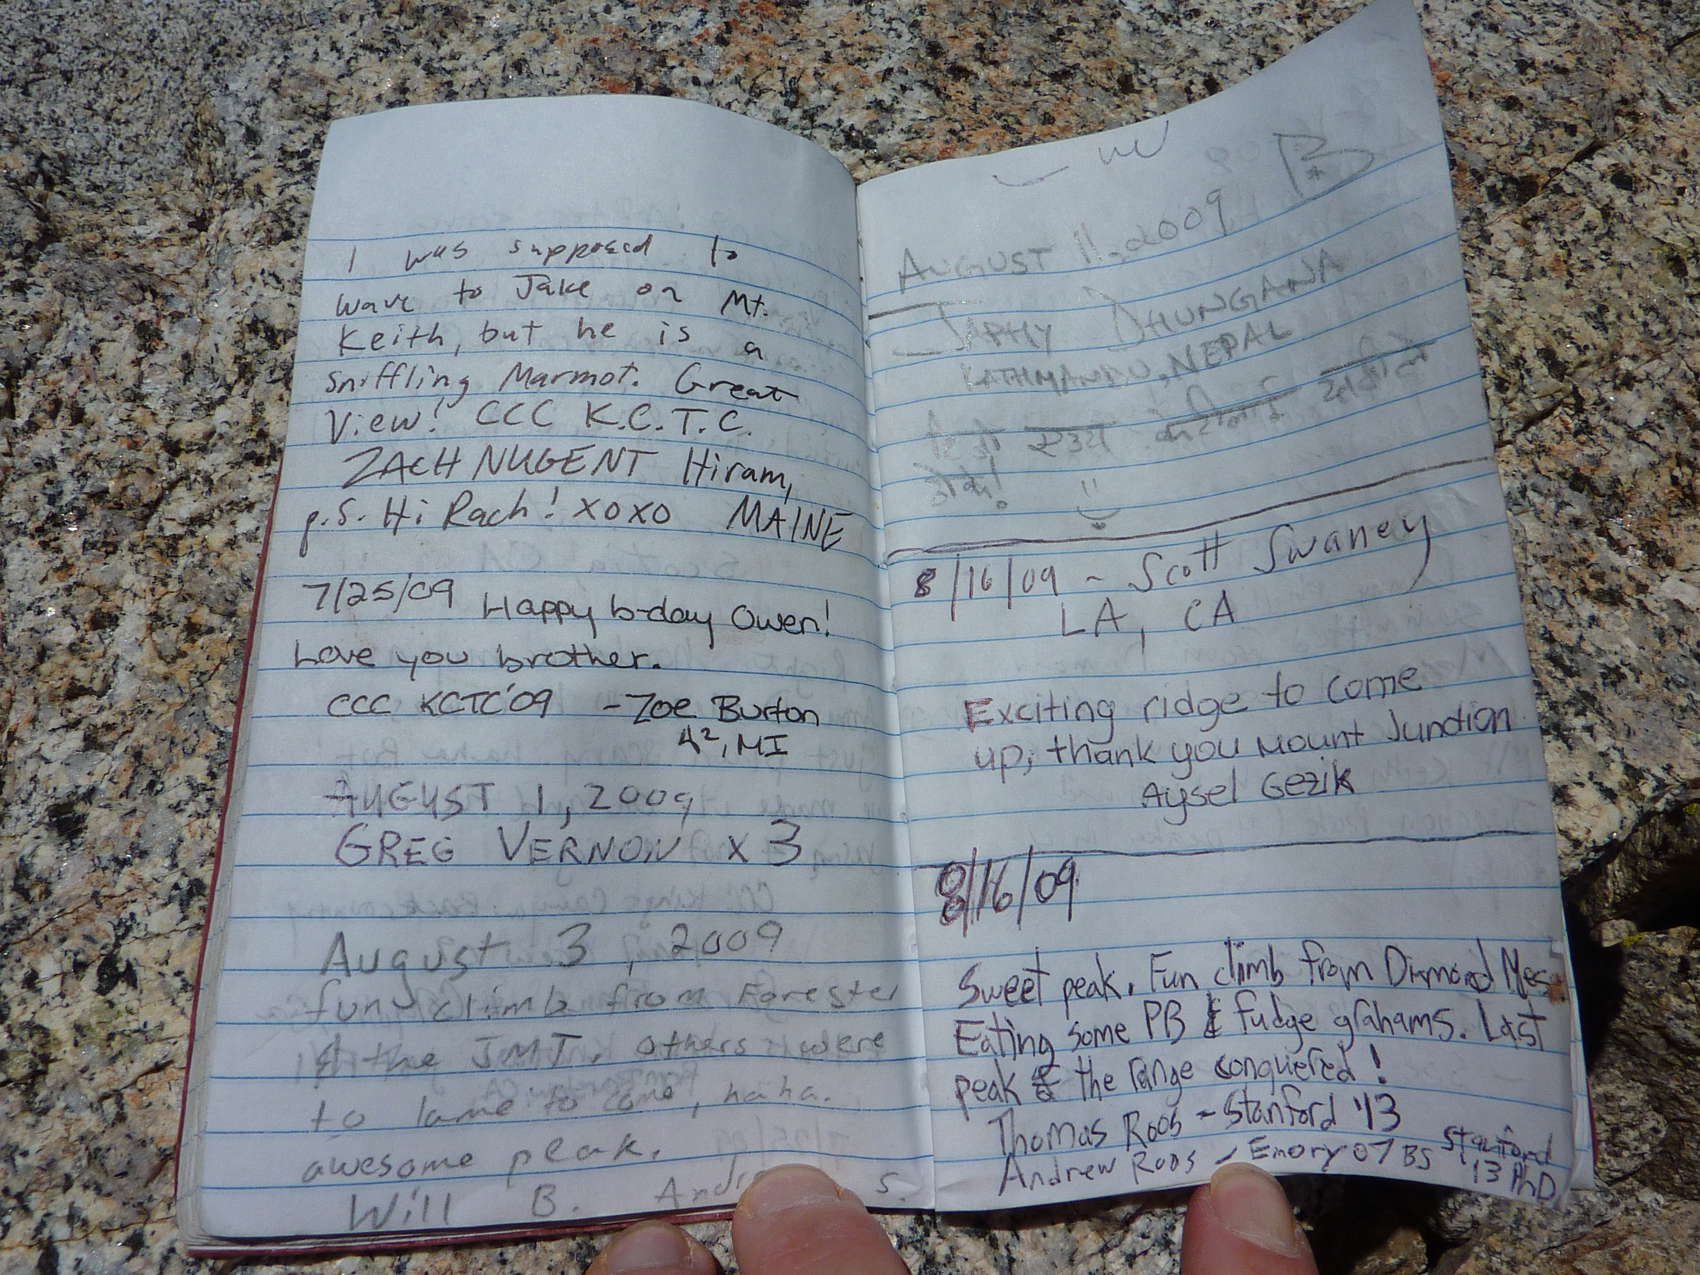 I was supposed to
wave to Jake on Mt.
Keith, but he is a
sniffling Marmot. Great
View! CCC K.C.T.C.
ZACH NUGENT Hiram,
p.s. Hi Rach! xoxo MAINE
7/25/09 Happy b-day Owen!
Love you brother.
CCC KCTC'09 - Zoe Burton
A², MI
AUGUST 1, 2009
GREG VERNON X 3
August 3, 2009
fun climb from Forester
& the J.M.T. others were
to lame to come, haha.
awesome peak.
Will B. S.
AUGUST 11, 2009
- JAPHY DHUNGANA
KATHMANDU, NEPAL
8/16/09 - Scott Swaney
LA, CA
Exciting ridge to come
up, thank you Mount Junction
Aysel Gezik
8/16/09
Sweet peak. Fun climb from Diamond Mesa
Eating some PB & fudge grahams. Last
peak & the range conquered!
Thomas Roos - Stanford '13
Andrew Roos - Emory 07 BS Stanford
'13 PhD